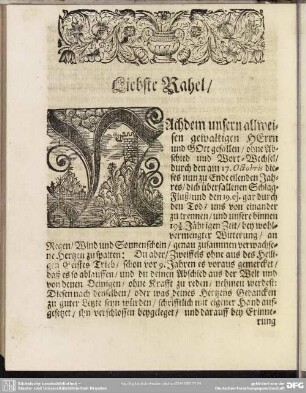 Liebste Rahel/
NAchdem unsern allwei-
sen gewaltigen HErrn
und GOtt gefallen / ohne Ab-
schied und Wort-Wechsel/
durch den am 17. Octobris die-
ses nun zu Ende eilenden Jah-
res/ dich überfallenen Schlag-
Fluß/ und den 19. ej. gar durch
den Tod / uns von einander
zu trennen / und unsere binnen
Jährigen Zeit/ bey wohl-
vermengter Witterung / an
Regen/ Wind und Sonnenschein / genau zusammen verwachse-
ne Hertzen zu spalten: Du aber/ Zweiffels ohne aus des Heili-
gen Geistes Trieb/ schon vor 9. Jahren es voraus gemercket/
daß es so ablauffen/ und du deinen Abschied aus der Welt und
von denen Deinigen/ ohne Krafft zu reden/ nehmen werdest:
Diesen nach denselben / oder was deines Hertzens Gedancken
zu guter Letzte seyn würden/ schrifftlich mit eigener Hand auf-
gesetzet/ ihn verschlossen beygeleget/ und darauf bey Erinne-
rung